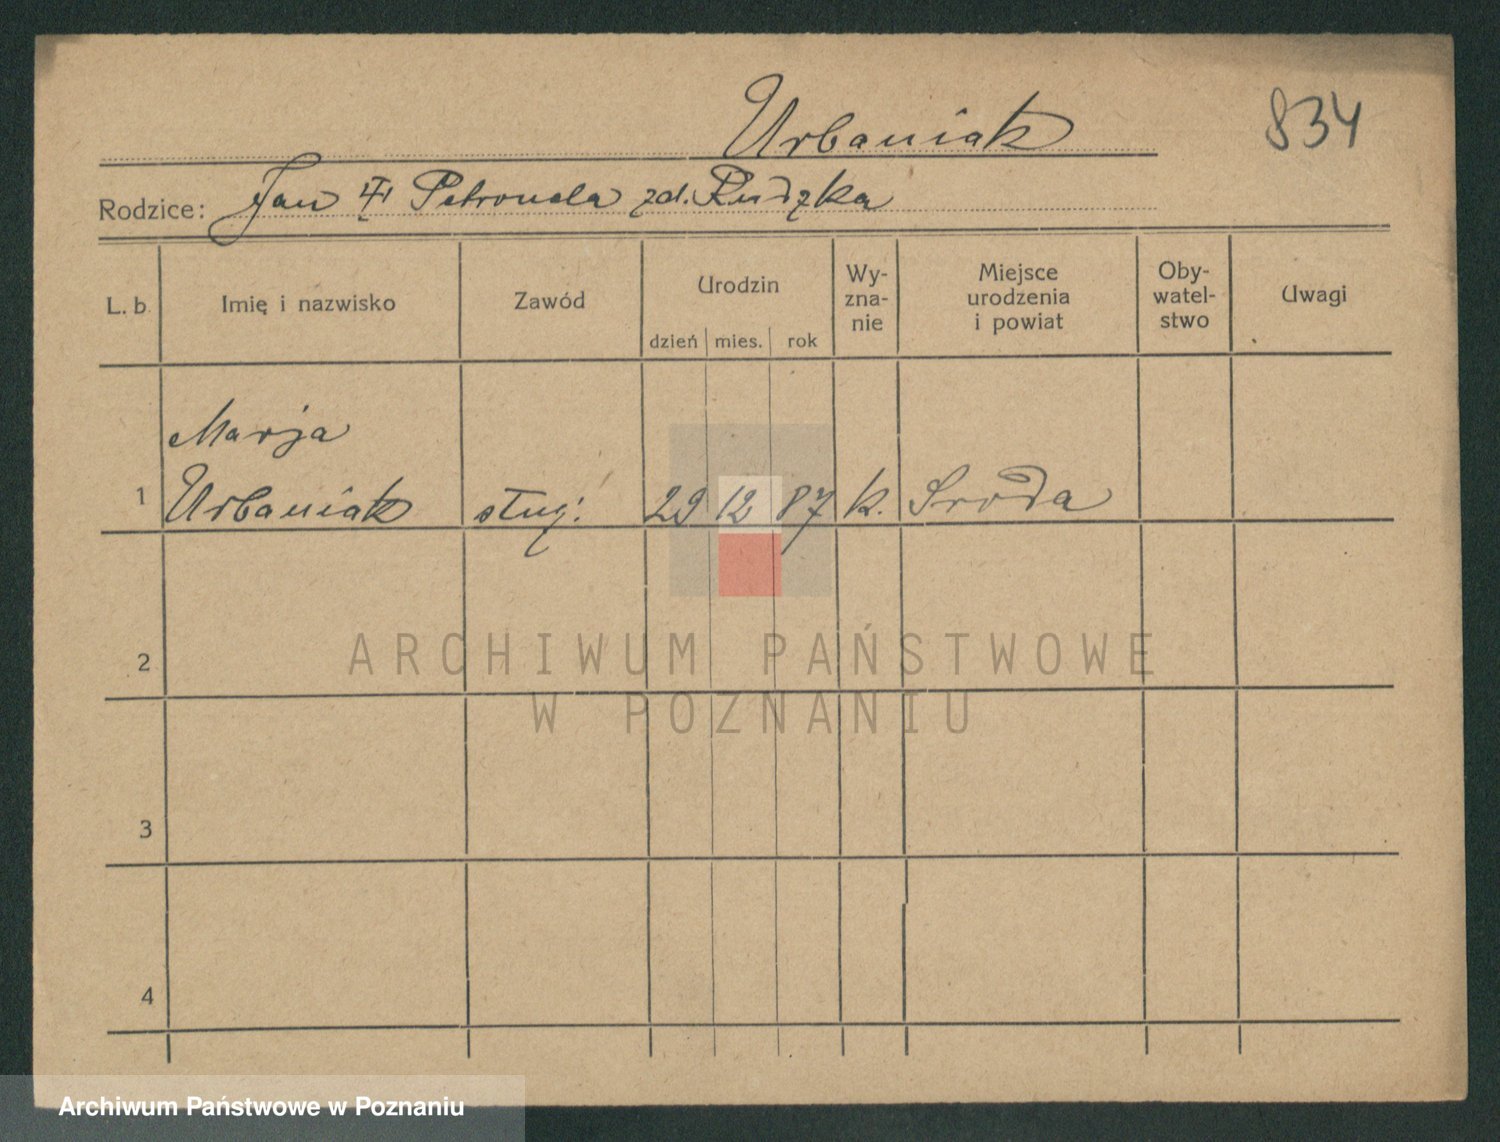 Urbaniak
834
Rodzice: Jan Petronela zd. Rudzka
L. b. Imię i nazwisko Zawód Urodzin dzień mies. rok Wy-
zna-
nie Miejsce
urodzenia
i powiat Oby-
watel-
stwo Uwagi
Marja
1 Urbaniak służ. 29 12 87 k. Sroda
2
ARCHIWUM PAŃSTWOWE
W POZNANIU
3
4
Archiwum Państwowe w Poznaniu